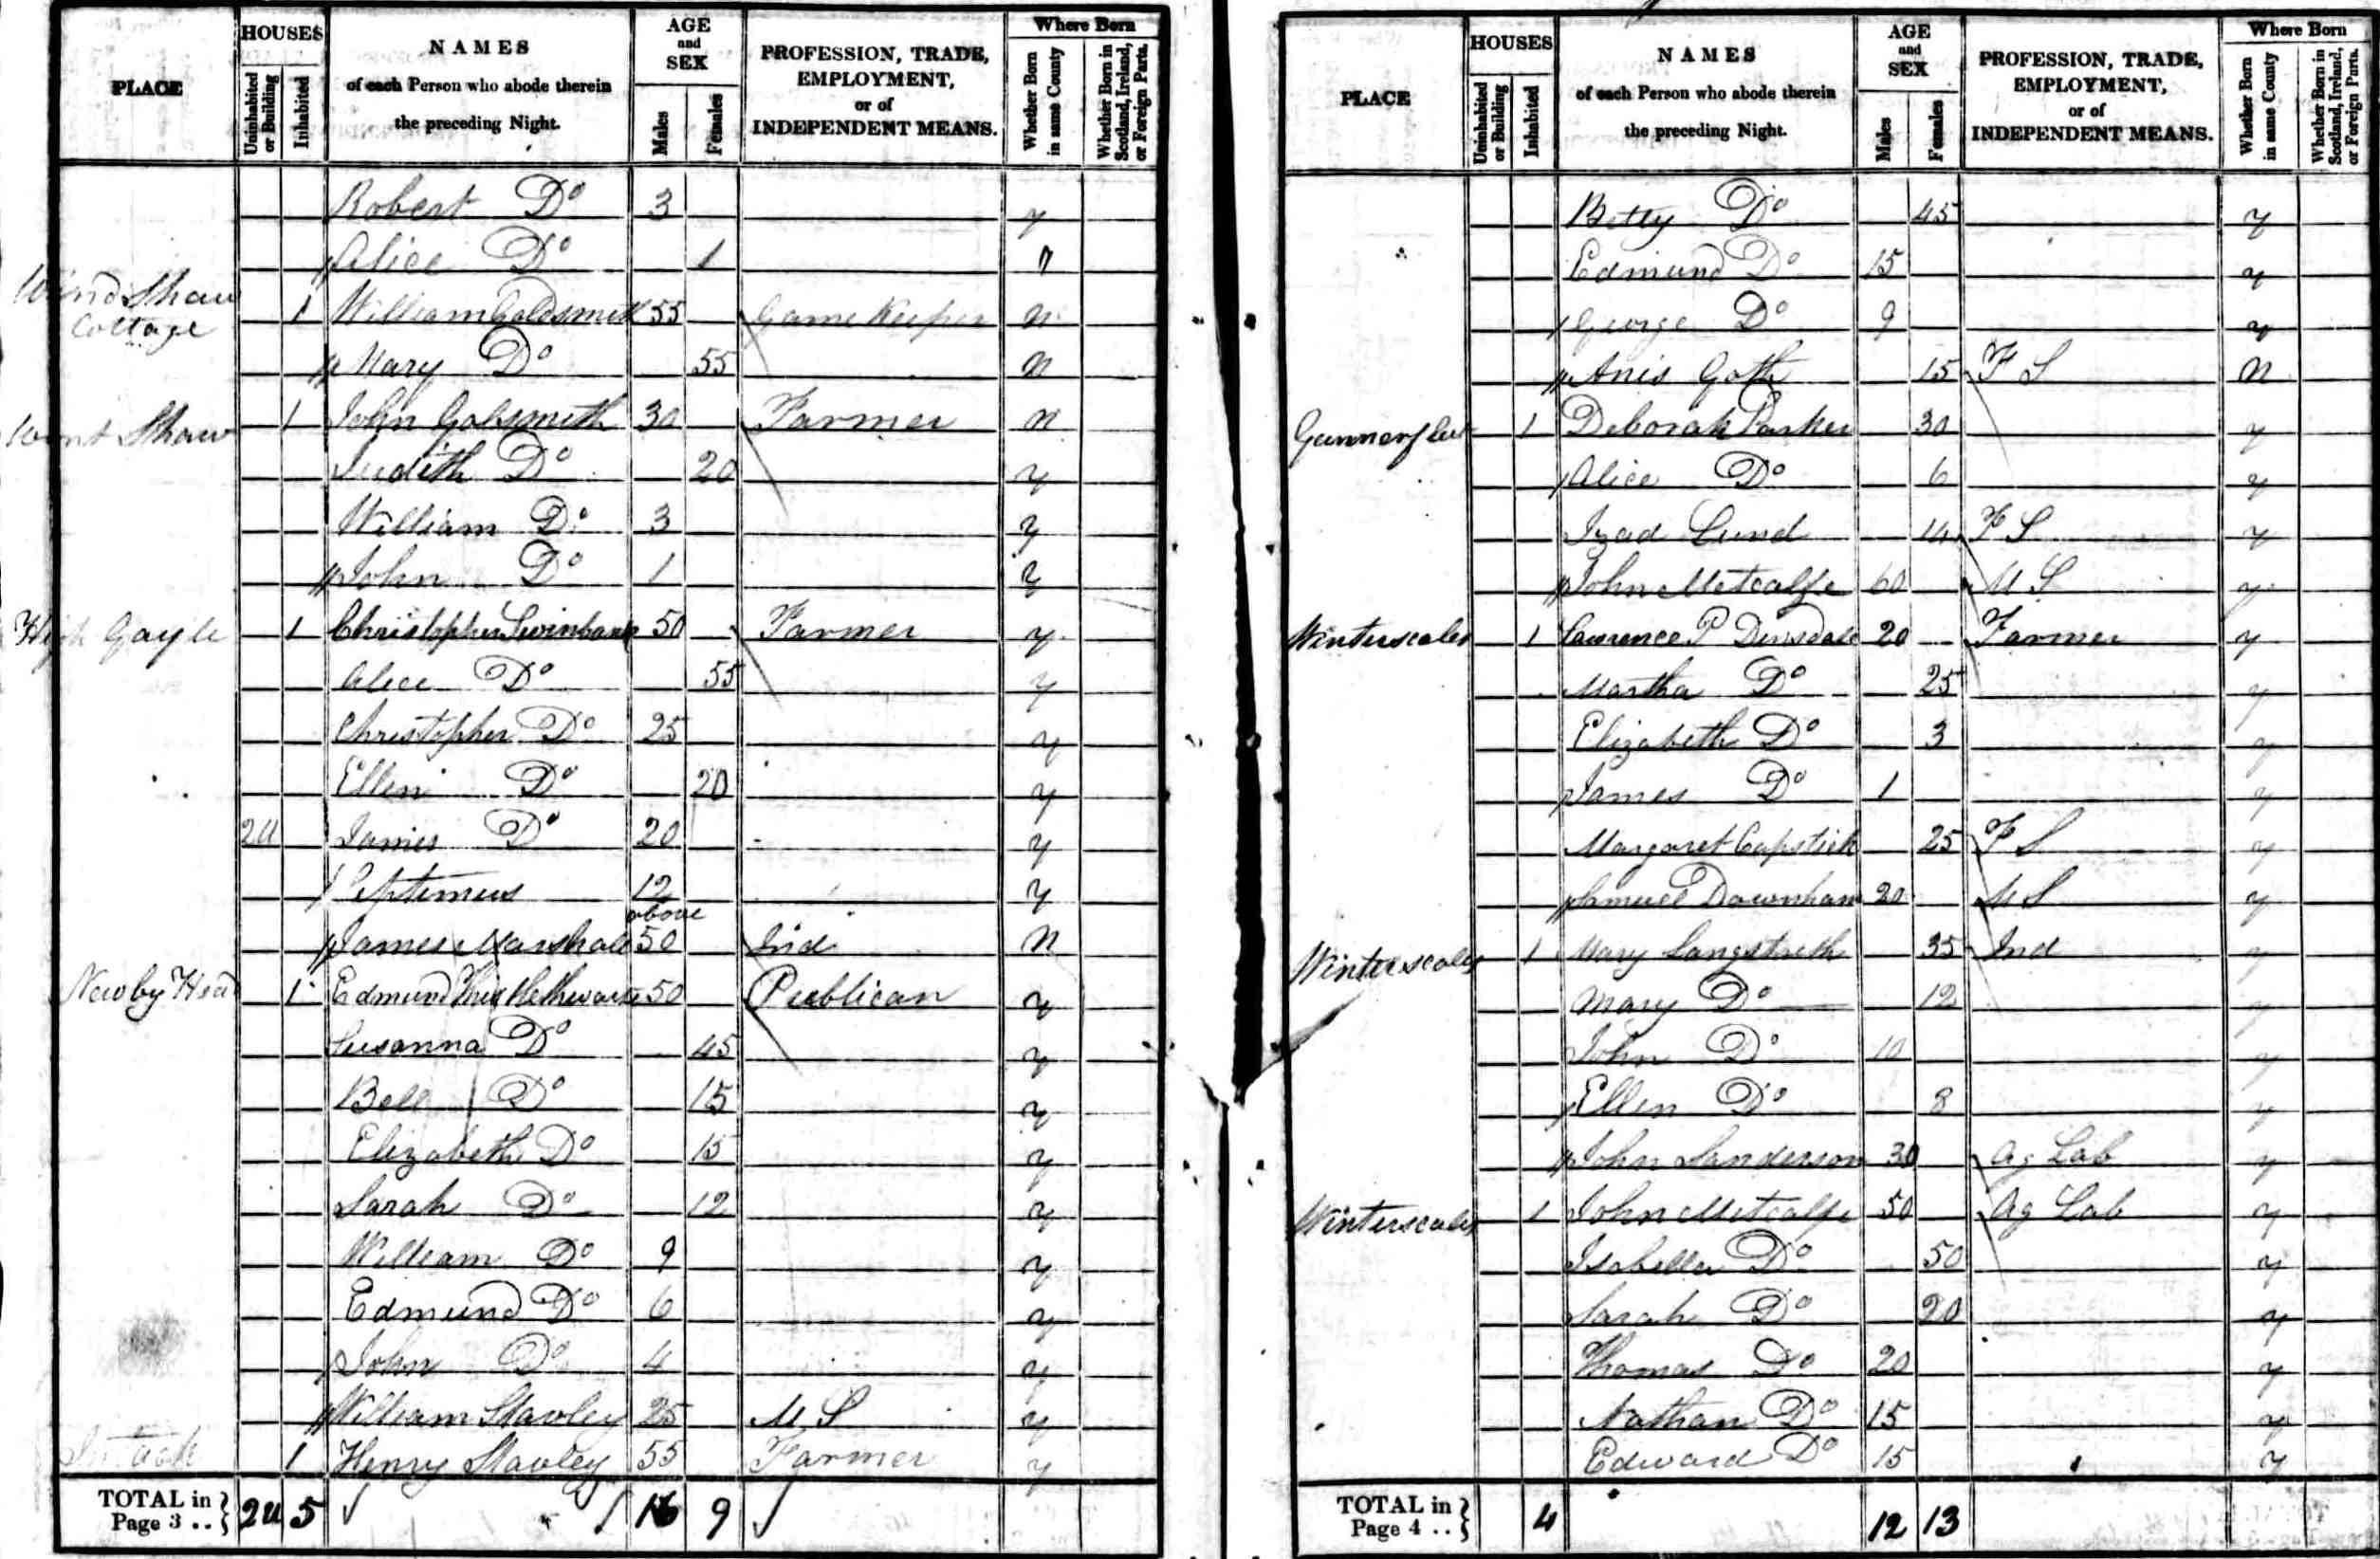 PLACE HOUSES Uninhabited or Building Inhabited NAMES of each Person who abode therein the preceding Night. AGE and SEX Males Females PROFESSION, TRADE, EMPLOYMENT, or of INDEPENDENT MEANS. Where Born Whether Born in same County Whether Born in Scotland, Ireland, or Foreign Parts.
Robert Do 3 y
Alice Do 1 n
Wind Shaw Cottage 1 William Goldsmith 55 Game Keeper n
Mary Do 55 n
Shaw 1 John Goldsmith 30 Farmer n
Judith Do 20 y
William Do 3 y
John Do 1 y
High Gayle 1 Christopher Swinbank 50 Farmer y
Alice Do 55 y
Christopher Do 25 y
Ellin Do 20 y
2U James Do 20 y
Septimus 12 y
James Marshall above 50 Ind n
Newby Head 1 Edmund 50 Publican y
Susanna Do 45 y
Bell Do 15 y
Elizabeth Do 15 y
Sarah Do 12 y
William Do 9 y
Edmund Do 6 y
John Do 4 y
William Staveley 25 M S y
Intack 1 Henry Staveley 55 Farmer y
TOTAL in Page 3 .. 2U 5 16 9
PLACE HOUSES Uninhabited or Building Inhabited NAMES of each Person who abode therein the preceding Night. AGE and SEX Males Females PROFESSION, TRADE, EMPLOYMENT, or of INDEPENDENT MEANS. Where Born Whether Born in same County Whether Born in Scotland, Ireland, or Foreign Parts.
Betty Do 45 y
Edmund Do 15 y
George Do 9 y
Anis Goth 15 F S n
Gunnerfleet 1 Deborah Parker 30 y
Alice Do 6 y
Izad Lund 14 F S y
John Metcalfe 60 M S y
Winterscales 1 Lawrence P Dinsdale 20 Farmer y
Martha Do 25 y
Elizabeth Do 3 y
James Do 1 y
Margaret Capstick 25 F S y
Samuel Downham 20 M S y
Winterscales 1 Mary Langstreth 35 Ind y
Mary Do 12 y
John Do 10 y
Ellen Do 8 y
John Sanderson 30 Ag Lab y
Winterscales 1 John Metcalfe 50 Ag Lab y
Isabella Do 50 y
Sarah Do 20 y
Thomas Do 20 y
Nathan Do 15 y
Edward Do 15 y
TOTAL in Page 4 .. 4 12 13